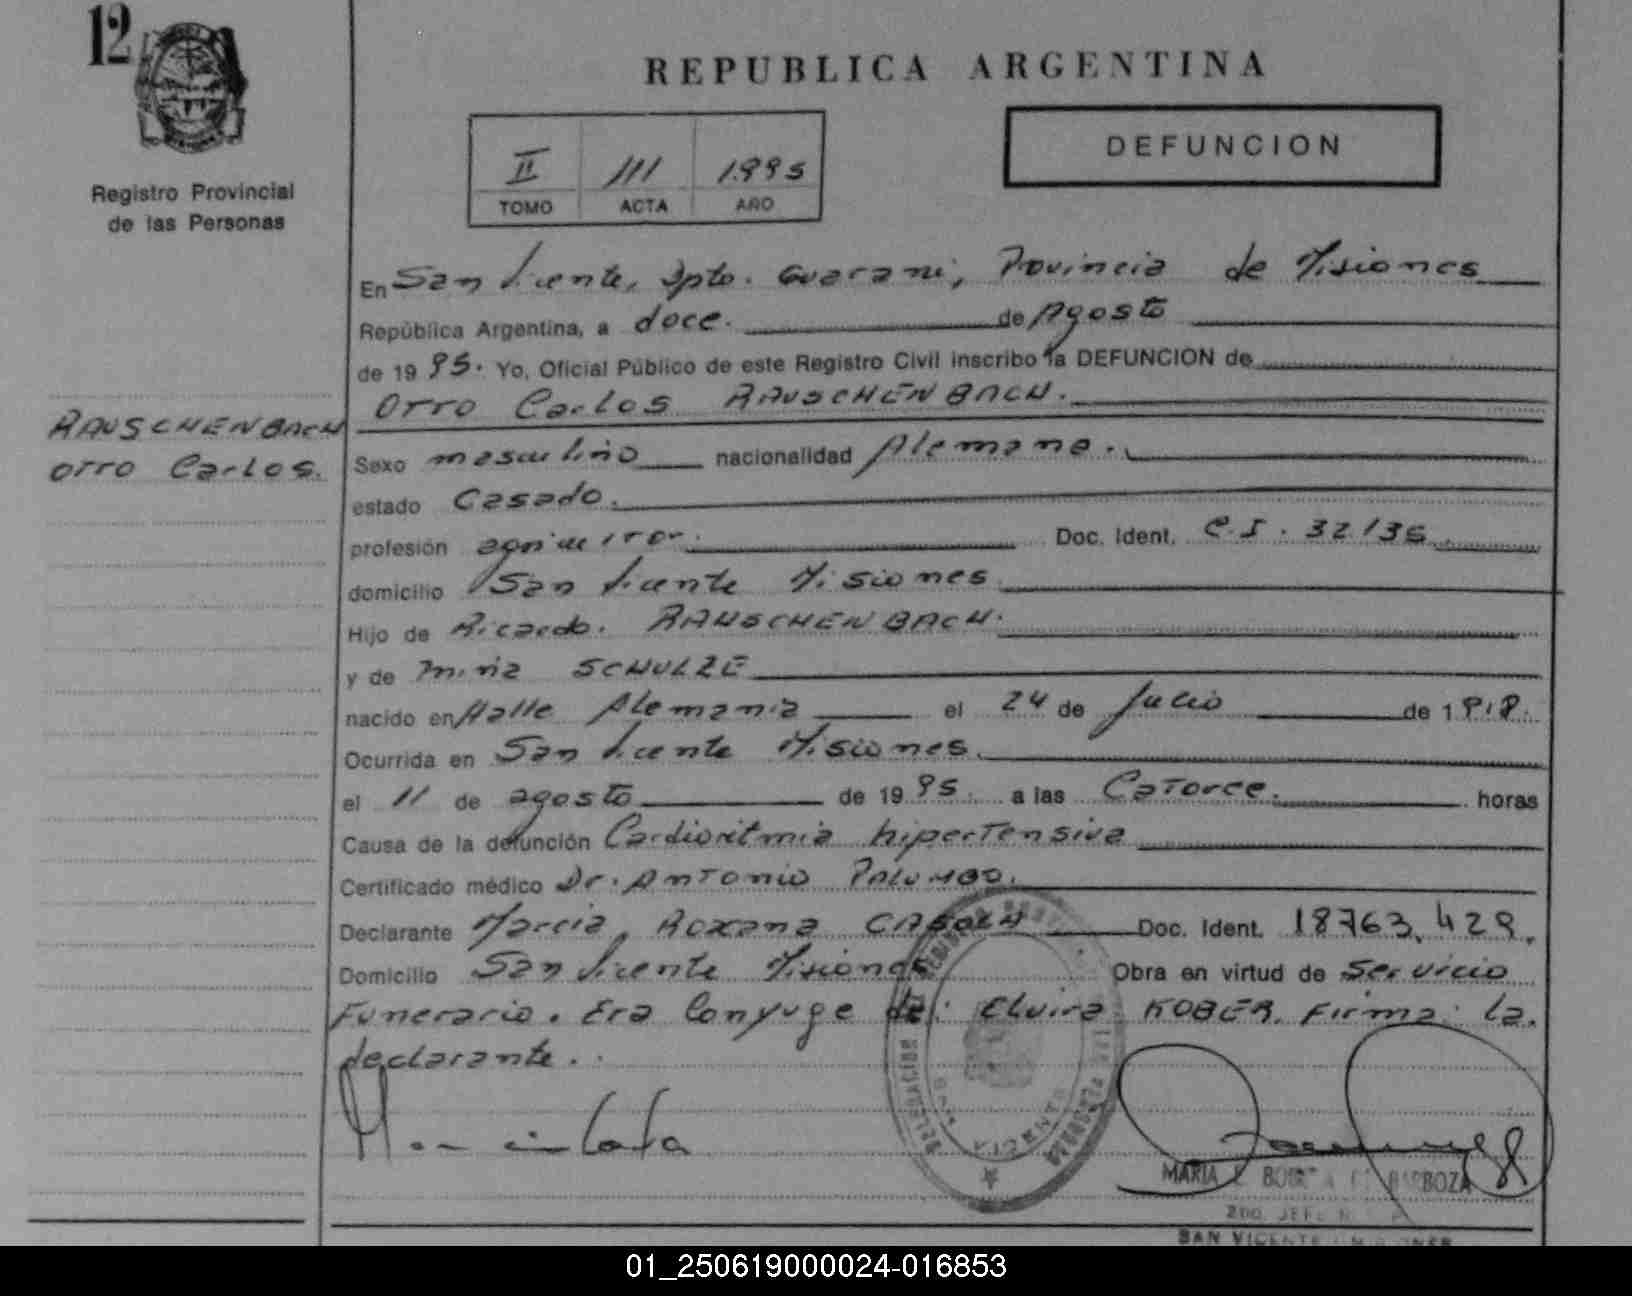 12
REPUBLICA ARGENTINA
DEFUNCION
II 111 1995
TOMO ACTA AÑO
Registro Provincial
de las Personas
En San Vicente, Dpto. Guarani, Provincia de Misiones
República Argentina, a doce. de Agosto
de 1995. Yo, Oficial Público de este Registro Civil inscribo la DEFUNCION de
Otto Carlos RAUSCHENBACH.
RAUSCHENBACH
Otto Carlos.
Sexo masculino nacionalidad Alemana.
estado Casado.
profesión Doc. Ident. C.I. 32135
domicilio San Vicente Misiones
Hijo de Ricardo. RAUSCHENBACH.
y de SCHULZE
nacido en Halle Alemania el 24 de Julio de 1918.
Ocurrida en San Vicente Misiones.
el 11 de agosto de 1995. a las Catorce. horas
Causa de la defunción hipertensiva
Certificado médico Dr. Antonio PALUMBO.
Declarante Marcia, Roxana Doc. Ident. 18763.429.
Domicilio San Vicente Misiones Obra en virtud de Servicio
Funerario. Era Conyuge de: Elvira KOBER. Firma: la.
declarante.
DELEGACION
SAN VICENTE
MARIA
BARBOZA
2DO. JEFE
SAN VICENTE MISIONES
01_250619000024-016853